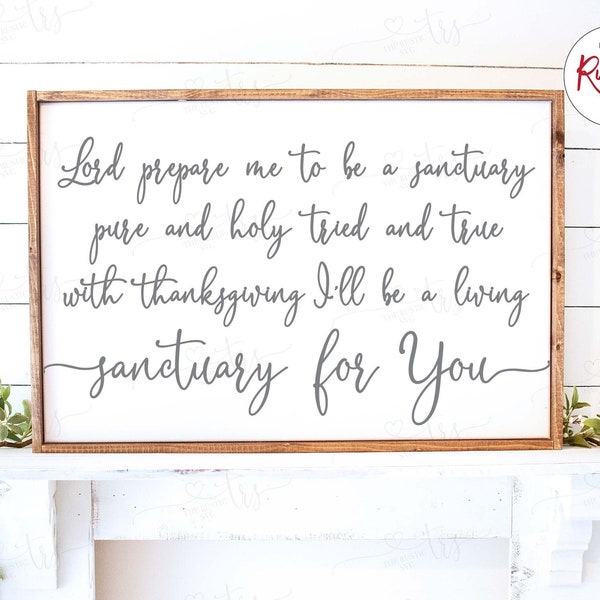 Lord prepare me to be a sanctuary
pure and holy tried and true
with thanksgiving I'll be a living
sanctuary for You